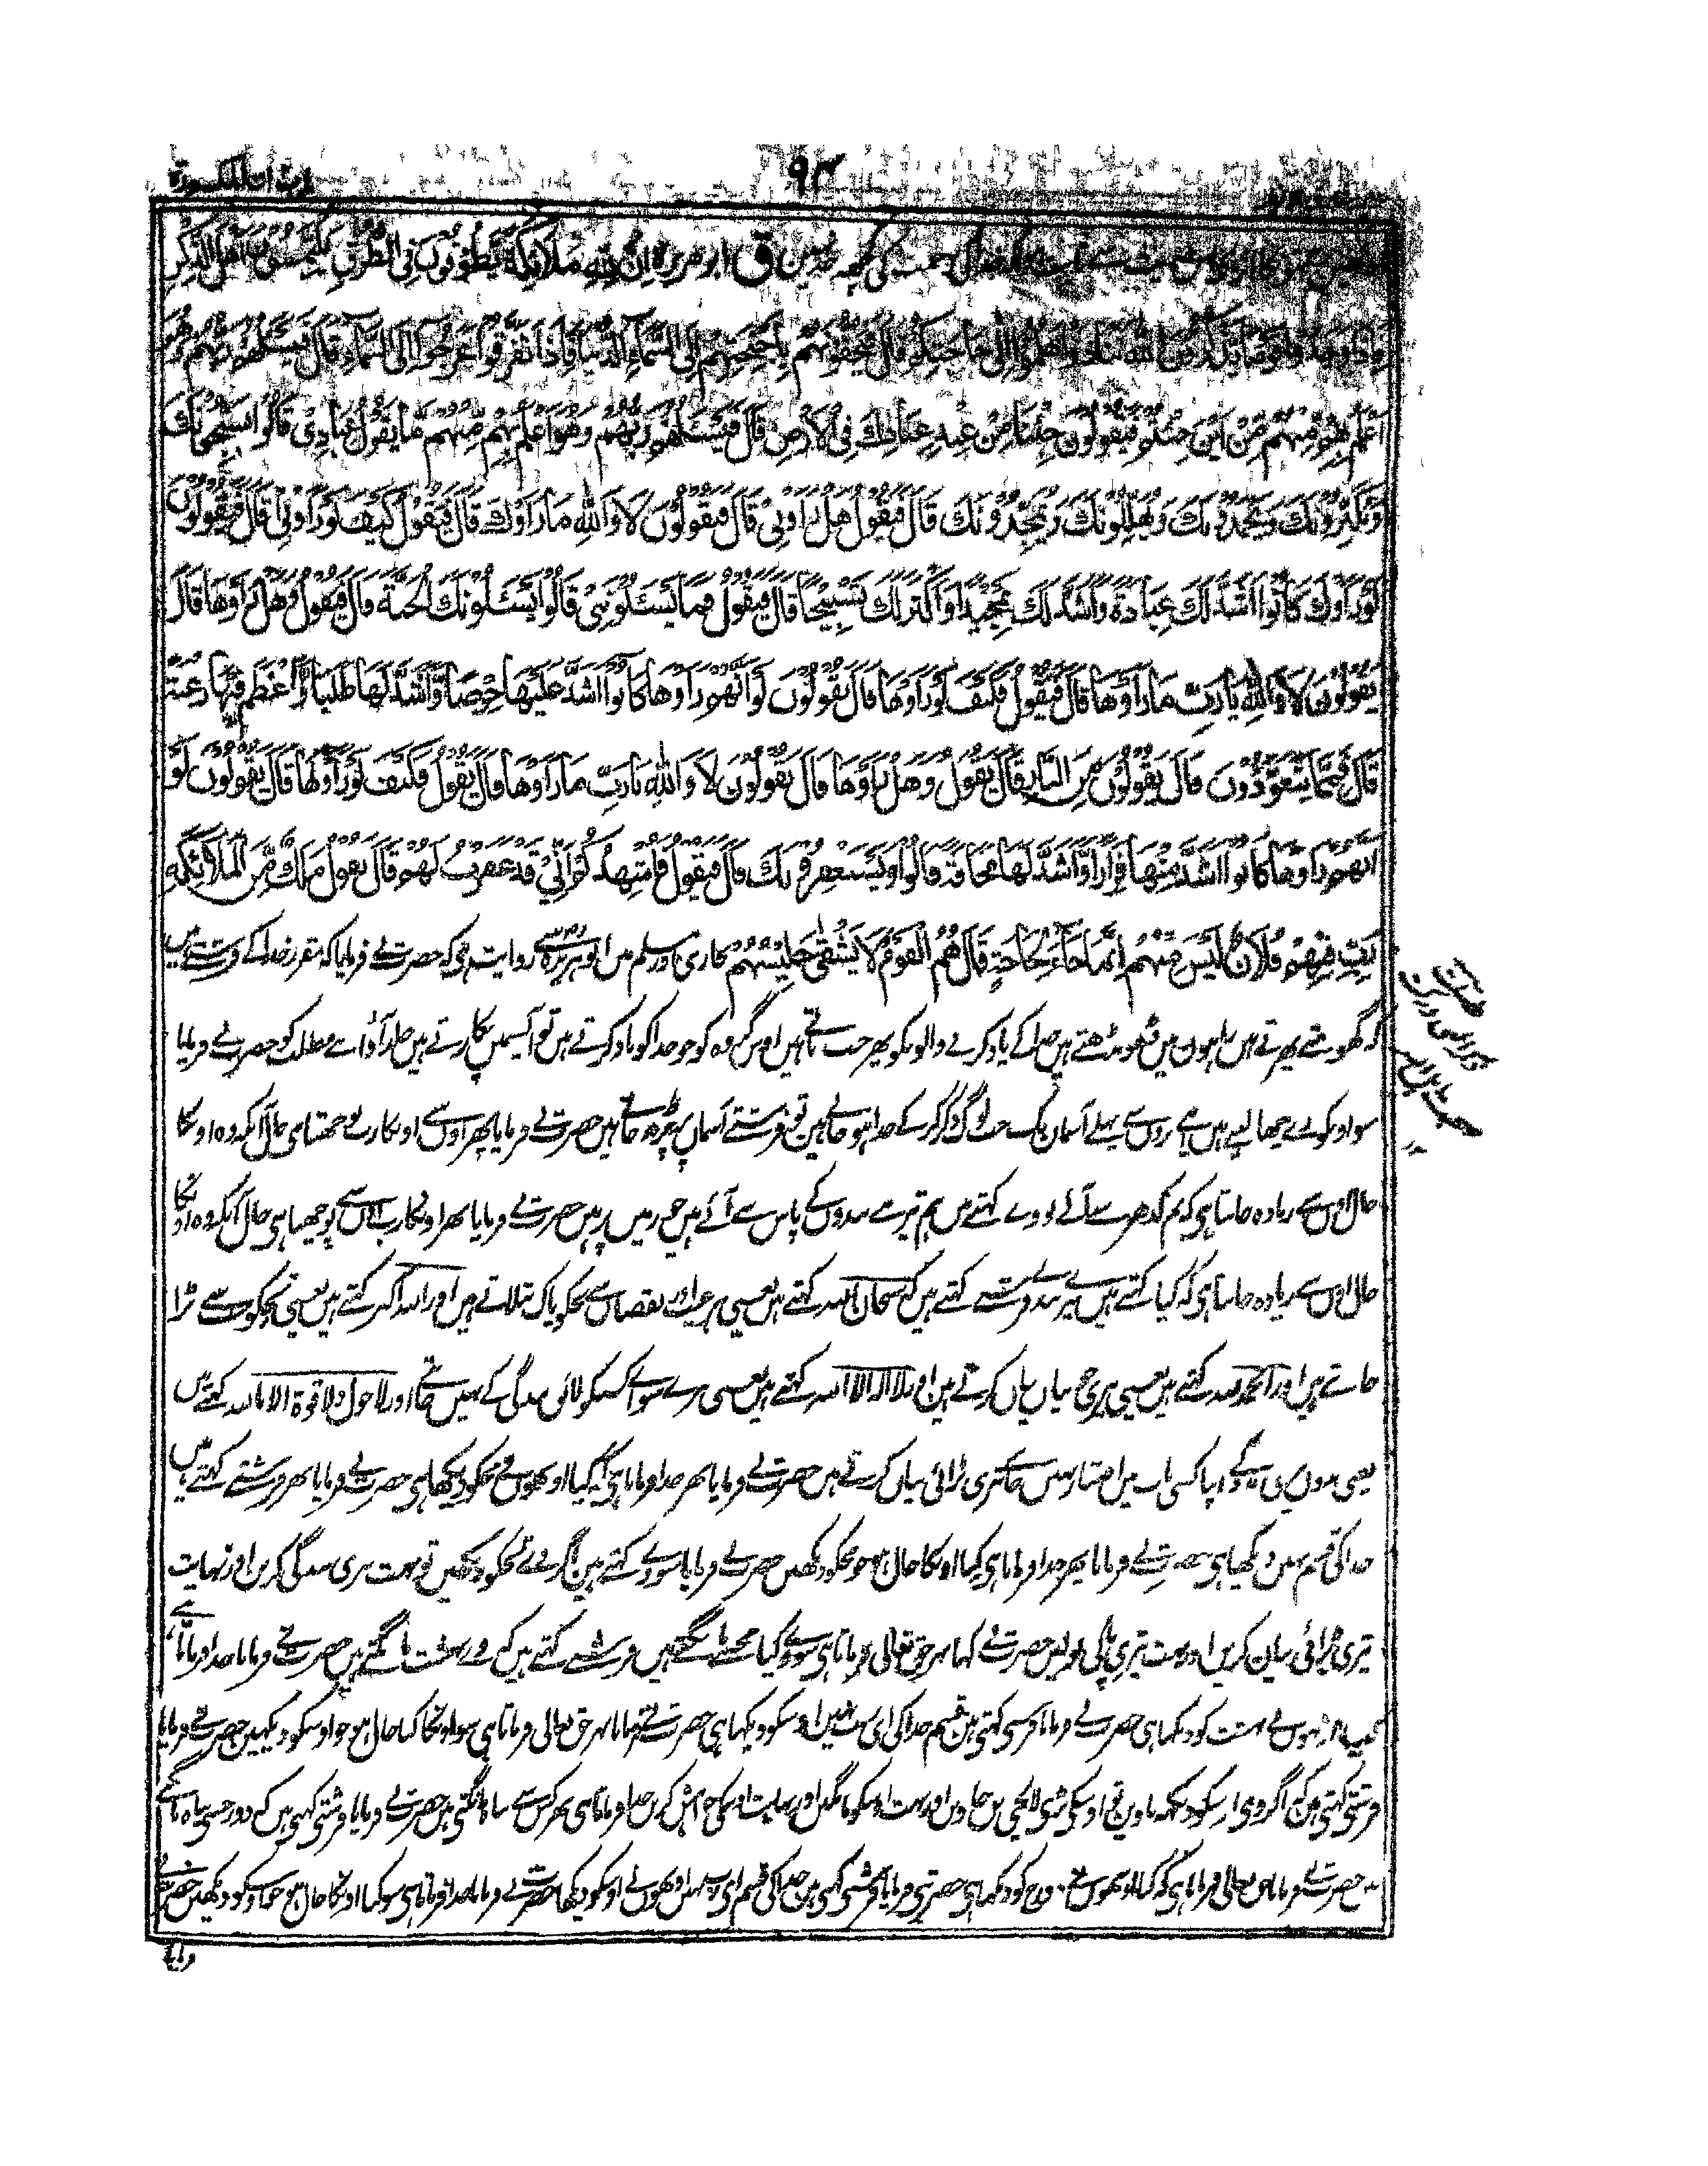 ٩٣
ق ابو هريرة ان لله ملائكة يطوفون في الطرق يلتمسون اهل الذكر
فاذا وجدوا قوما يذكرون الله تنادوا هلموا الى حاجتكم قال فيحفونهم باجنحتهم الى السماء الدنيا فاذا تفرقوا عرجوا الى السماء قال فيسئلهم ربهم وهو
اعلم بهم منهم من اين جئتم فيقولون جئنا من عند عبادك في الارض قال فيسئلهم ربهم وهو اعلم بهم منهم ما يقول عبادي قالوا يسبحونك
ويكبرونك ويحمدونك ويهللونك ويمجدونك قال فيقول هل راوني قال فيقولون لا والله ما راوك قال فيقول كيف لو راوني قال فيقولون
لو راوك كانوا اشد لك عبادة واشد لك تمجيدا واكثر لك تسبيحا قال فيقول فما يسئلوني قالوا يسئلونك الجنة قال فيقول وهل راوها قال
يقولون لا والله يا رب ما راوها قال فيقول فكيف لو راوها قال يقولون لو انهم راوها كانوا اشد عليها حرصا واشد لها طلبا واعظم فيها رغبة
قال فمما يتعوذون قال يقولون من النار قال يقول وهل راوها قال يقولون لا والله يا رب ما راوها قال يقول فكيف لو راوها قال يقولون لو
انهم راوها كانوا اشد منها فرارا واشد لها مخافة قالوا ويستغفرونك قال فيقول فاشهدكم اني قد غفرت لهم قال يقول ملك من الملائكة
رب فيهم فلان ليس منهم انما جاء لحاجة قال هم القوم لا يشقى جليسهم بخاری اور مسلم میں ابو ہریرہ سے روایت ہی کہ حضرت نے فرمایا کہ مقرر خدا کے فرشتے ہیں
کہ گھومتے پھرتے ہیں راہوں میں ڈھونڈھتے ہیں خدا کے یاد کرنے والونکو پھر جب پاتے ہیں اوس گروہ کو جو خدا کو یاد کرتے ہیں تو آپسمیں پکارتے ہیں جلد آؤ اپنے مطلب کو حضرت نے فرمایا
سو اونکو وے چھا لیتے ہیں اپنے پروں سے پہلے آسمان تک جب لوگ ذکر کرکے جدا ہو جاتے ہین تو فرشتے آسمان پر چڑھ جاتے ہیں حضرت نے فرمایا پھر اون سے اونکا رب پوچھتا ہی حال آنکہ وہ اونکا
حال اون سے زیادہ جانتا ہی کہ تم کدھر سے آئے تو وے کہتے ہیں ہم تیرے بندوں کے پاس سے آئے ہیں جو زمین پر ہیں حضرت نے فرمایا پھر اونکا رب اون سے پوچھتا ہی حال آنکہ وہ اونکا
حال اون سے زیادہ جانتا ہی کہ کیا کہتے ہیں میرے بندے فرشتے کہتے ہیں کہ سبحان اللہ کہتے ہیں یعنی ہر عیب اور نقصان سے تجکو پاک بتلاتے ہیں اور اللہ اکبر کہتے ہیں یعنی تجکو سب سے بڑا
جانتے ہیں اور الحمد للہ کہتے ہیں یعنی تیری خوبیاں بیان کرتے ہین اور لا الہ الا اللہ کہتے ہیں یعنی تیرے سوا کسیکو لائق بندگی کے نہیں جانتے اور لا حول ولا قوة الا باللہ کہتے ہیں
تیری بڑائی بیان کرتے ہیں حضرت نے فرمایا پھر خدا فرماتا ہی کہ کیا اونھوں نے مجکو دیکھا ہی حضرت نے فرمایا پھر فرشتے کہتے ہیں
خدا کی قسم نہیں دیکھا ہی حضرت نے فرمایا پھر خدا فرماتا ہی کیا اونکا حال ہو جو مجکو دیکھیں حضرت نے فرمایا سو وے کہتے ہین اگر وے تجکو دیکھیں تو بہت تیری بندگی کریں اور نہایت
تیری بڑائی بیان کریں اور بہت تیری پاکی بولیں حضرت نے کہا پھر حق تعالی فرماتا ہی سو وے کیا مجھسے مانگتے ہیں فرشتے کہتے ہین کہ وے بہشت مانگتے ہیں حضرت نے فرمایا خدا فرماتا ہے
کیا اونہوں نے بہشت کو دیکہا ہی حضرت نے فرمایا فرشتی کہتی ہین قسم خدا کی ای رب نہیں اوسکو دیکہا ہی حضرت نے فرمایا پہر حق تعالی فرماتا ہی سو اونکا کیا حال ہو جو اوسکو دیکہیں حضرت نے فرمایا
فرشتی کہتی ہین کہ اگر وی اوسکو دیکہہ پاوین تو اوسکی بڑی لالچی بن جاویں اور بہت اوسکو مانگیں اور نہایت اوسکی خواہش کریں خدا فرماتا ہی پھر کس سے پناہ مانگتی ہیں حضرت نے فرمایا فرشتی کہتی ہیں کہ دوزخ سے پناہ مانگتے
ہیں حضرت نے فرمایا حق تعالی فرماتا ہی کہ کیا اونھوں نے دوزخ کو دیکہا ہی حضرت نے فرمایا فرشتی کہتی ہین خدا کی قسم ای رب نہیں اونھوں نے اوسکو دیکھا حضرت نے فرمایا خدا فرماتا ہی سو کیا اونکا حال ہو جو اوسکو دیکھیں حضرت نے
فرمایا